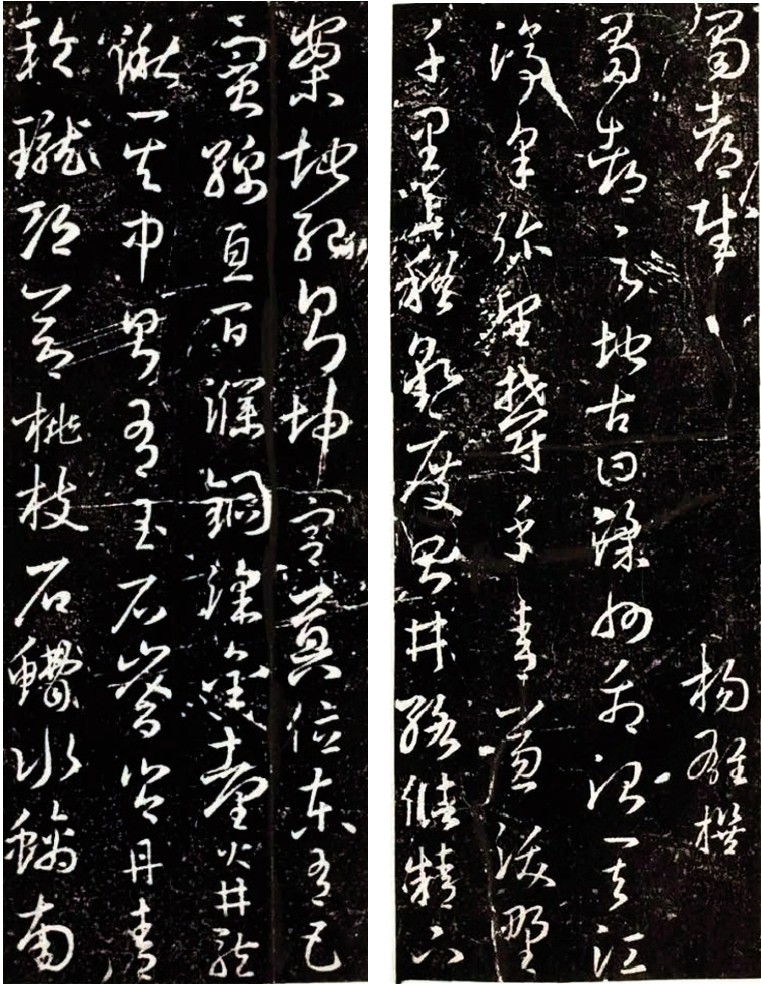 蜀都賦 楊雄撰
蜀都之地古曰梁州禹治其江
渟皋彌望鬱乎青蔥沃野
千里上稽乾度則井絡儲精下
案地紀則坤宮奠位東有巴
賨綿亘百濮銅梁金堂火井龍
湫其中則有玉石嶜岑丹青
玲瓏邛節桃枝石鰽水螭南